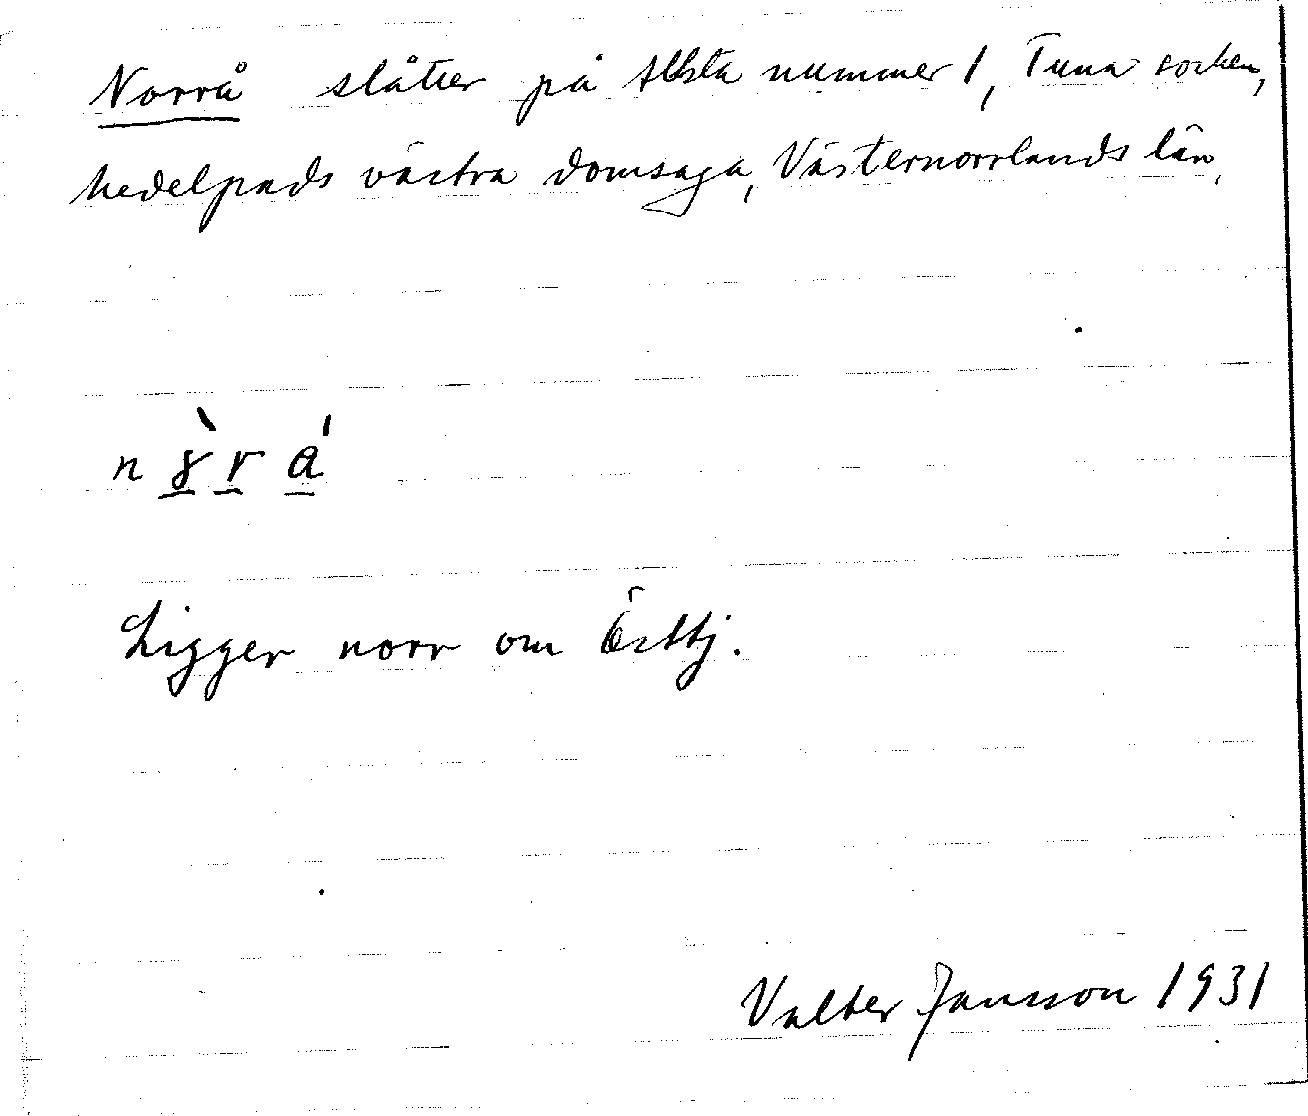 Norrå slåtter på Allsta nummer 1, Tuna socken,
Medelpads västra domsaga, Västernorrlands län,
Ligger norr om Östtj.
Valter Jansson 1931